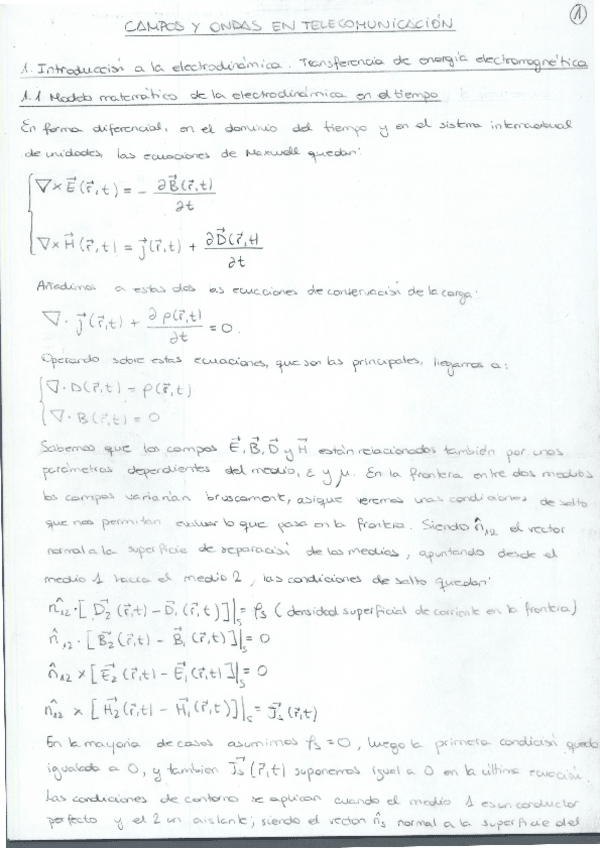 ①
CAMPOS Y ONDAS EN TELECOMUNICACIÓN
1. Introducción a la electrodinámica. Transferencia de energía electromagnética
1.1 Modelo matemático de la electrodinámica en el tiempo
En forma diferencial, en el dominio del tiempo y en el sistema internacional
de unidades, las ecuaciones de Maxwell quedan:
∇×E⃗(r⃗,t) = - ∂B⃗(r⃗,t)/∂t
∇×H⃗(r⃗,t) = j⃗(r⃗,t) + ∂D⃗(r⃗,t)/∂t
Añadimos a estas dos las ecuaciones de conservación de la carga:
∇· j⃗(r⃗,t) + ∂ρ(r⃗,t)/∂t = 0.
Operando sobre estas ecuaciones, que son las principales, llegamos a:
∇· D(r⃗,t) = ρ(r⃗,t)
∇· B(r⃗,t) = 0
Sabemos que los campos E⃗, B⃗, D⃗ y H⃗ están relacionados también por unos
parámetros dependientes del medio, ε y μ. En la frontera entre dos medios
los campos varianían bruscamente, asique veremos unas condiciones de salto
que nos permitan evaluar lo que pasa en la frontera. Siendo n̂₁₂ el vector
normal a la superficie de separación de los medios, apuntando desde el
medio 1 hacia el medio 2, las condiciones de salto quedan:
n̂₁₂ · [D⃗₂(r⃗,t) - D⃗₁(r⃗,t)]|ₛ = ρₛ (densidad superficial de corriente en la frontera)
n̂₁₂ · [B⃗₂(r⃗,t) - B⃗₁(r⃗,t)]|ₛ = 0
n̂₁₂ × [E⃗₂(r⃗,t) - E⃗₁(r⃗,t)]|ₛ = 0
n̂₁₂ × [H⃗₂(r⃗,t) - H⃗₁(r⃗,t)]|ₛ = J⃗ₛ(r⃗,t)
En la mayoría de casos asumimos ρₛ = 0, luego la primera condición queda
igualada a 0, y tambien J⃗ₛ(r⃗,t) suponemos igual a 0 en la última ecuación.
Las condiciones de contorno se aplican cuando el medio 1 es un conductor
perfecto y el 2 un aislante, siendo el vector n̂ₛ normal a la superficie del